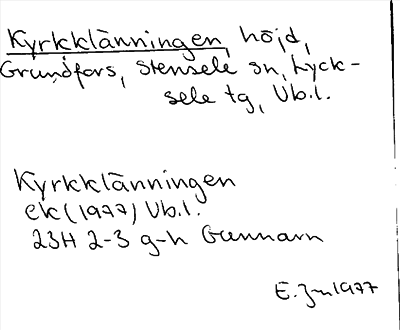 Kyrkklänningen, höjd,
Grundfors, Stensele sn, Lyck-
sele tg, Vb.l.
Kyrkklänningen
ek (1977) Vb.l.
23H 2-3 g-h Gunnarn
E. Jn 1977